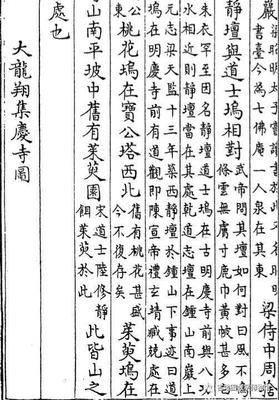 嚴
書臺今為七佛庵一人泉在其東
梁侍中周捨
靜壇與道士塢相對
武帝問其壇如何對曰風不鳴
條雲無膚寸鹿巾黃帔甚多
朱衣罕至因名靜壇道士塢在古明慶寺前與八功
水相近則靜壇當在其處乾道志壇在鍾山南巖上
元志梁天監十三年築西靜壇於鍾山下事迹曰道
塢在明慶寺前有道觀即陳宣帝禮玄靖臧兢處在
公
東
桃花塢在寶公塔西北
舊有桃花甚盛
今不復存矣
茱萸塢在
山南平坡中舊有茱萸園
宋道士陸修靜
餌茱萸於此
此皆山之
處也
大龍翔集慶寺圖